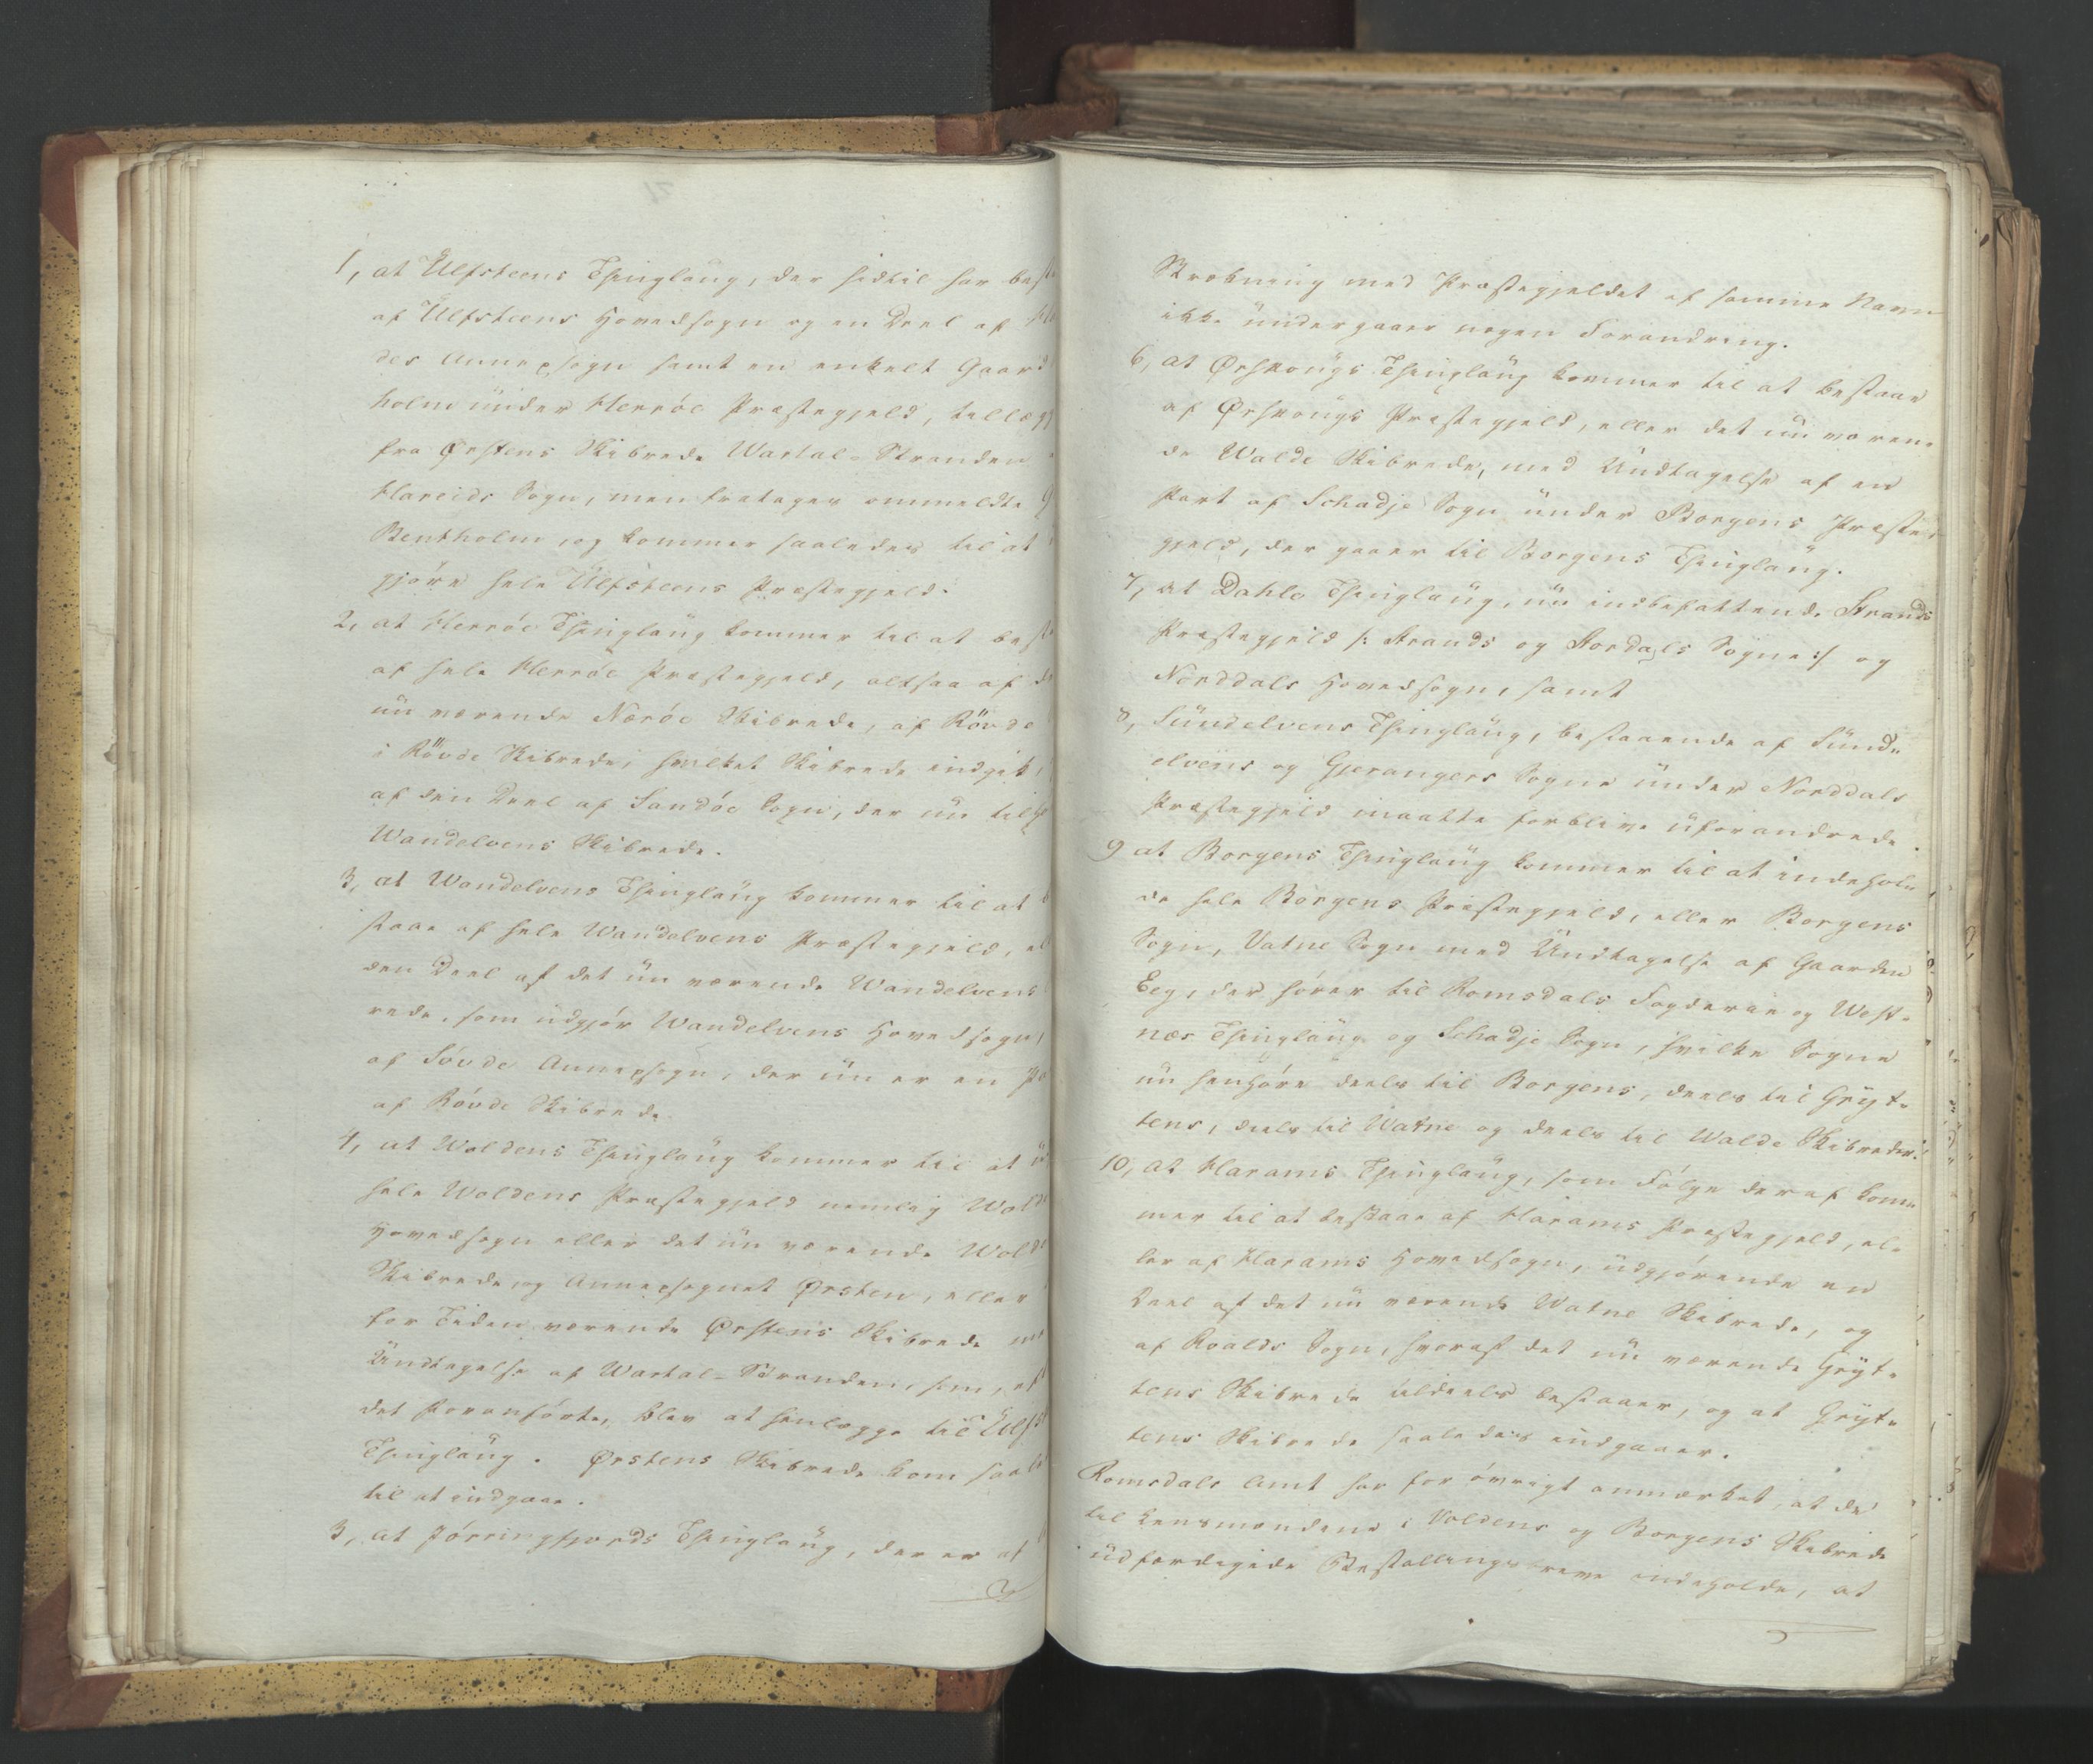 1, at Ulfsteens Thinglaug, der hidtil har best
af Ulfsteens Hovedsogn og en Deel af
des Annexsogn samt en enkelt Gaard
holm under Herröe Præstegjeld, tillæg
fra Ørstens Skibrede Wartal-Stranden
Hareids Sogn, men fratages ommeldte G
Bentholm, og kommer saaledes til at
gjöre hele Ulfsteens Præstegjeld.
2, at Herröe Thinglaug kommer til at best
af hele Herröe Præstegjeld, altsaa af d
nu værende Neröe Skibrede, af Rövde
i Rövde Skibrede, hvilket Skibrede indgik,
af den Deel af Sandöe Sogn, der nu til
Wandelvens Skibrede.
3, at Wandelvens Thinglaug kommer til at b
staae af hele Wandelvens Præstegjeld, el
den Deel af det nu værende Wandelvens
rede, som udgjör Wandelvens Hovedsogn,
af Sövde Annexsogn, der nu er en P
af Rövde Skibrede.
4, at Woldens Thinglaug kommer til at
hele Woldens Præstegjeld nemlig Wold
Hovedsogn eller det nu værende Wolde
Skibrede, og Annexsognet Ørsten, eller
for Tiden værende Ørstens Skibrede
Undtagelse af Wartal-Stranden, som, ef
det foranförte, blev at henlægge til Ulfs
Thinglaug. Ørstens Skibrede kom saal
til at indgaae.
5, at Jörringfjords Thinglaug, der er af
Strækning med Præstegjeldet af samme Navn
ikke undergaaer nogen Forandring.
6, at Ørskougs Thinglaug kommer til at bestaae
af Ørskougs Præstegjeld, eller det nu væren-
de Walde Skibrede, med Undtagelse af en
Part af Schadje Sogn under Borgens Præste-
gjeld, der gaaer til Borgens Thinglaug.
7, at Dahle Thinglaug, nu indbefattende Strands
Præstegjeld /: Strands og Stordals Sogne :/ og
Norddals Hovedsogn, samt
8, Sundelvens Thinglaug, bestaaende af Sund-
elvens og Gjerangers Sogne under Norddals
Præstegjeld maatte forblive uforandrede.
9 at Borgens Thinglaug kommer til at indehol-
de hele Borgens Præstegjeld, eller Borgens
Sogn, Vatne Sogn med Undtagelse af Gaarden
Eeg, der hörer til Romsdals Fogderie og West-
næs Thinglaug og Schadje Sogn, hvilke Sogne
nu henhöre deels til Borgens, deels til Gryt-
tens, deels til Watne og deels til Walde Skibreder.
10, at Harams Thinglaug, som Fölge deraf kom-
mer til at bestaae af Harams Præstegjeld, el-
ler af Harams Hovedsogn, udgjörende en
Deel af det nu værende Watne Skibrede, og
af Roalds Sogn, hvoraf det nu værende Gryt-
tens Skibrede tildeels bestaaer, og at Gryt-
tens Skibrede saaledes indgaaer.
Romsdals Amt har for övrigt anmærket, at de
til Lensmændene i Voldens og Borgens Skibrede
udfærdigede Bestallingsbreve indeholde, at